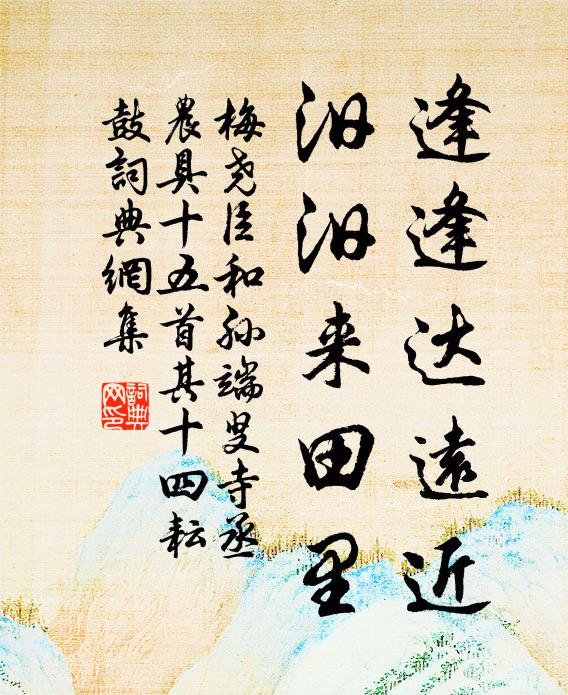 逢逢达遠近
汩汩来田里
梅尧臣和孙端叟寺丞
農具十五首其十四耘
鼓詞典網集
詞典
网印